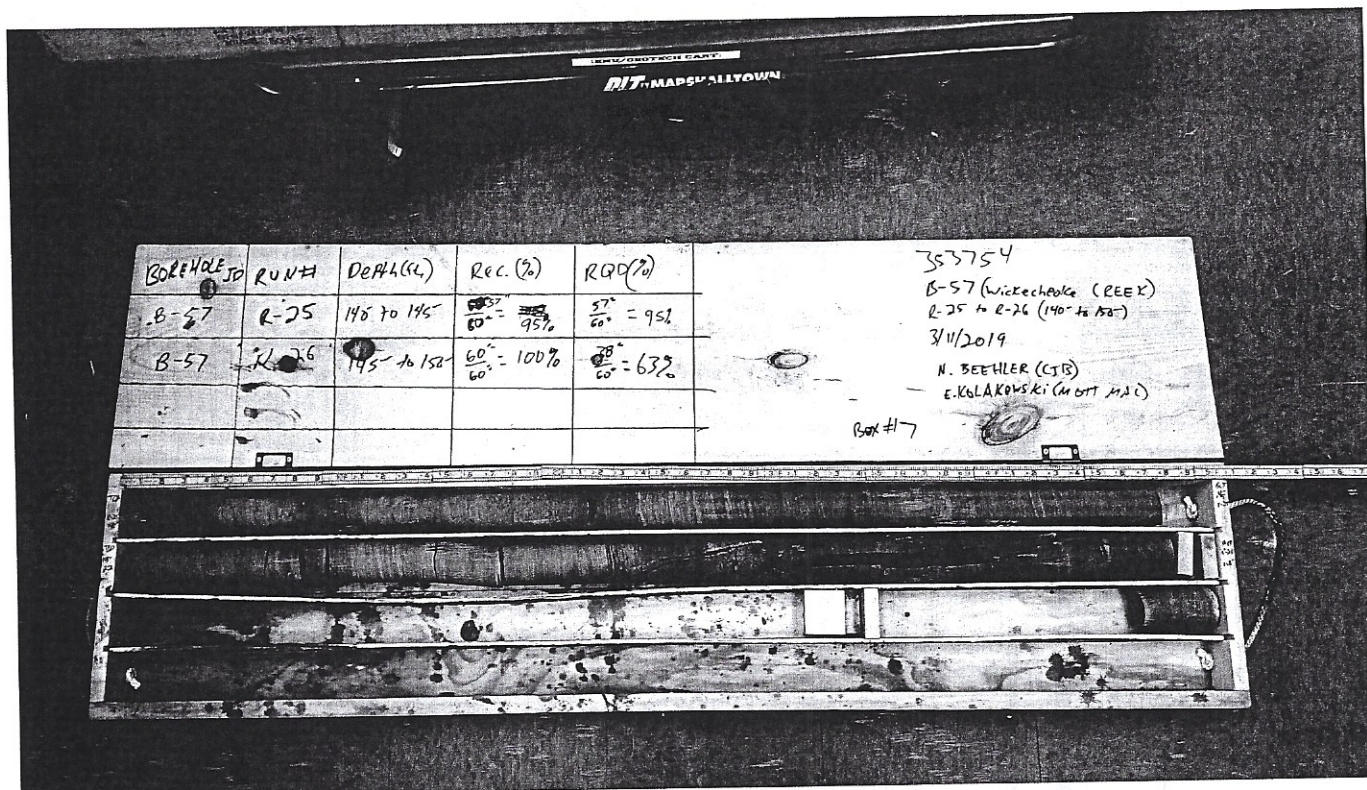 EMU/GEOTECH CART
PIT MARSHALLTOWN
BOREHOLE ID RUN# DEPth(ft) REC.(%) RQD(%)
B-57 R-25 140 to 145 57"/60" = 95% 57"/60" = 95%
B-57 R-26 145 to 150 60"/60" = 100% 38"/60" = 63%
353754
B-57 (Wickecheoke CREEK)
R-25 to R-26 (140 to 150)
3/11/2019
N. BEEHLER (CJB)
E. KOLAKOWSKI (MOTT MAC)
BOX #17